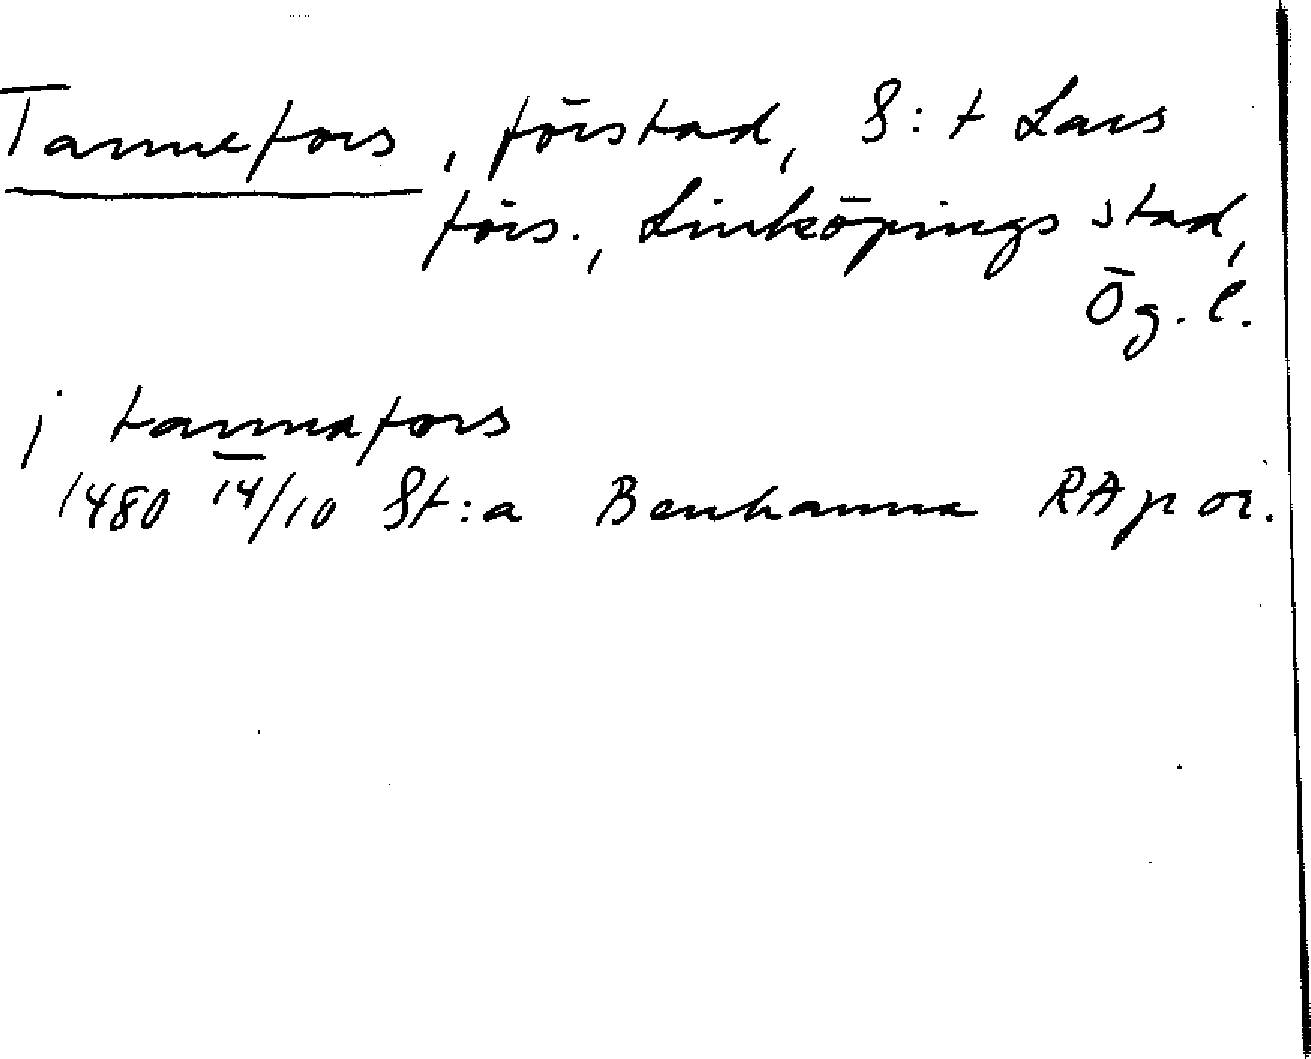 Tannefors, förstad, S:t Lars
förs., Linköpings stad,
Ög. l.
j tannafors
1480 14/10 St:a Benhamra RAp or.